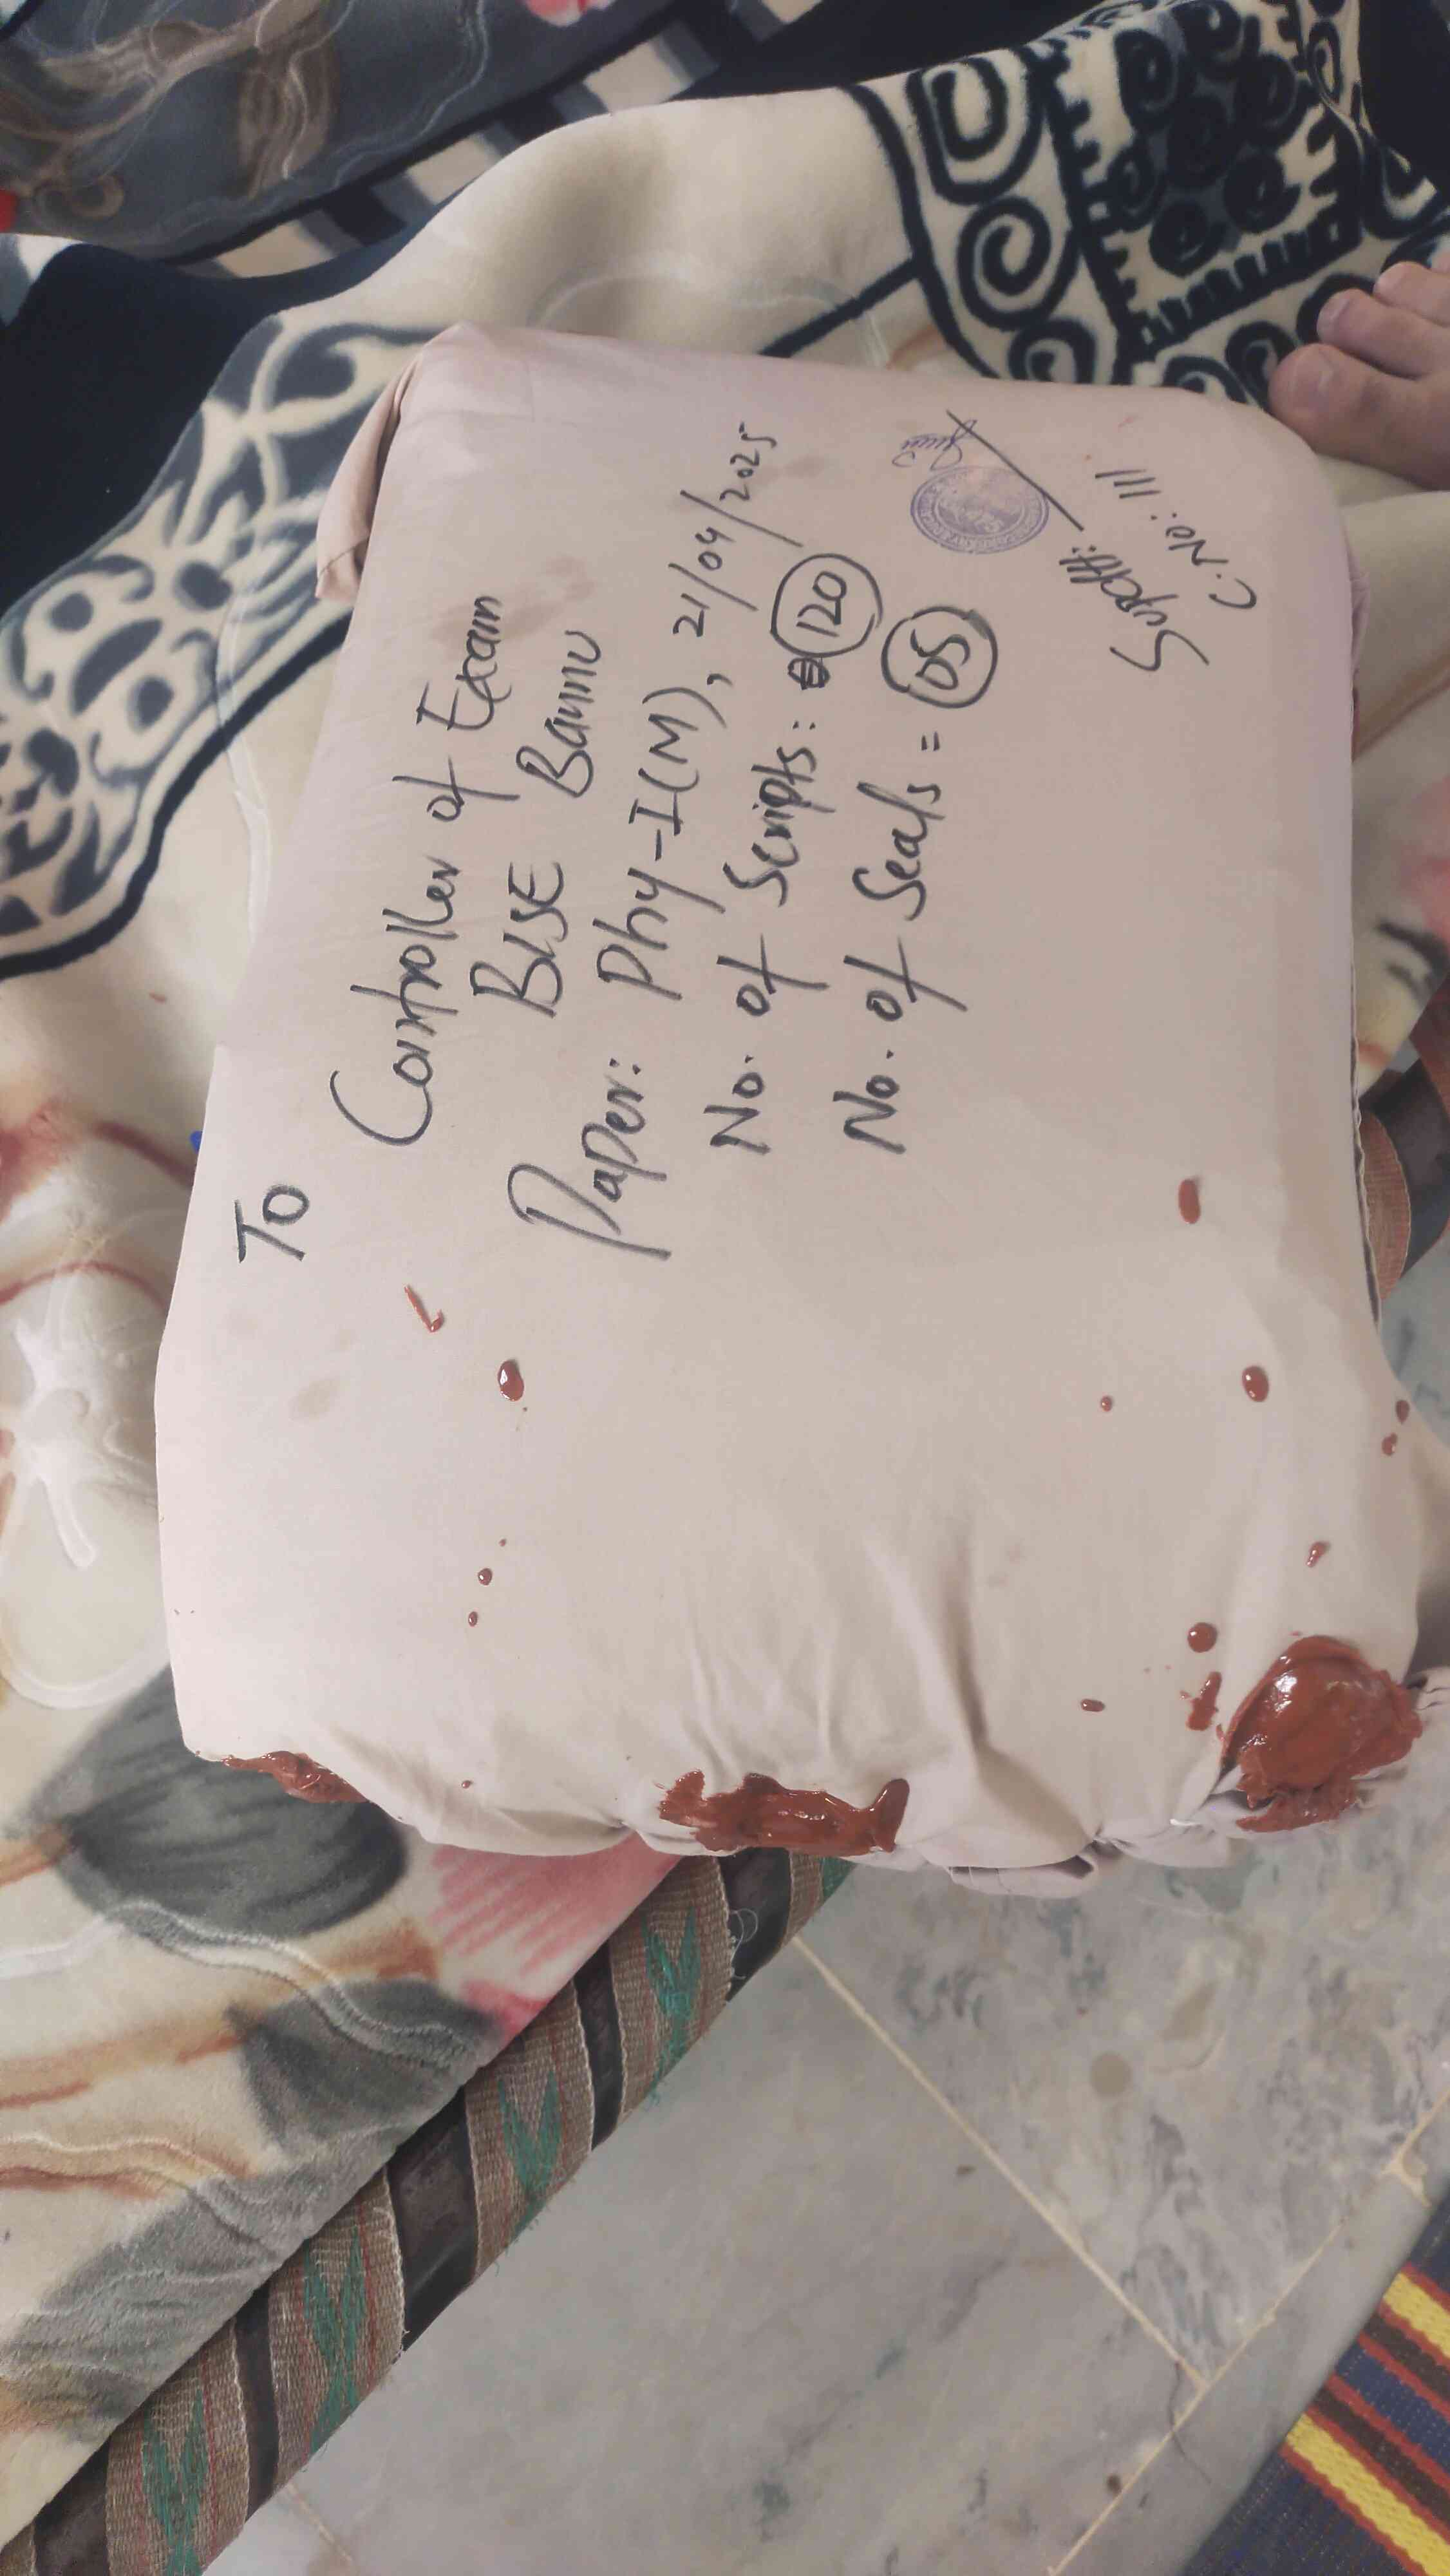 To
Controller of Exam
BISE Bannu
Paper: Phy-I(M), 21/04/2025
No. of Scripts: 120
No. of Seals = 05
Supdtt:
C.No: 111